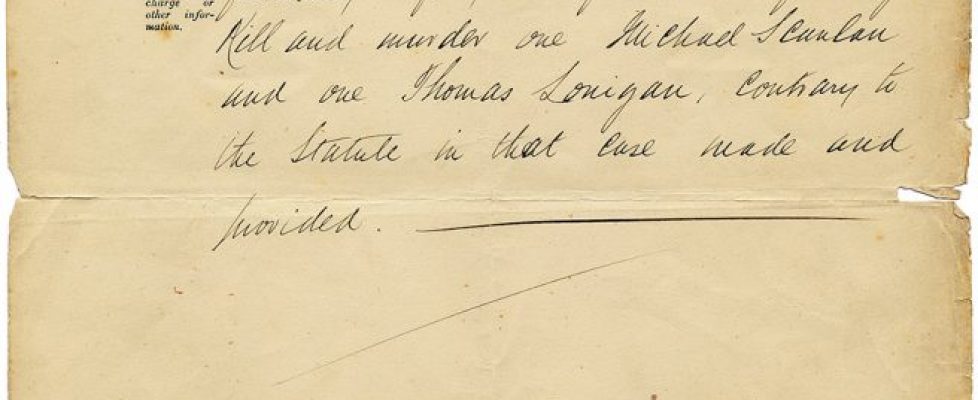 charge or
other infor-
mation.
Kill and murder one Michael Scanlan
and one Thomas Lonigan, contrary to
the Statute in that case made and
provided.